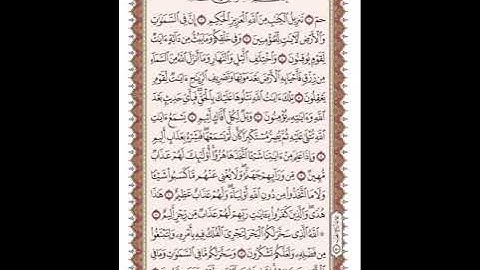 حمٓ ١ تَنزِيلُ ٱلْكِتَٰبِ مِنَ ٱللَّهِ ٱلْعَزِيزِ ٱلْحَكِيمِ ٢ إِنَّ فِى ٱلسَّمَٰوَٰتِ
وَٱلْأَرْضِ لَءَايَٰتٍ لِّلْمُؤْمِنِينَ ٣ وَفِى خَلْقِكُمْ وَمَا يَبُثُّ مِن دَآبَّةٍ ءَايَٰتٌ
لِّقَوْمٍ يُوقِنُونَ ٤ وَٱخْتِلَٰفِ ٱلَّيْلِ وَٱلنَّهَارِ وَمَآ أَنزَلَ ٱللَّهُ مِنَ ٱلسَّمَآءِ
مِن رِّزْقٍ فَأَحْيَا بِهِ ٱلْأَرْضَ بَعْدَ مَوْتِهَا وَتَصْرِيفِ ٱلرِّيَٰحِ ءَايَٰتٌ لِّقَوْمٍ
يَعْقِلُونَ ٥ تِلْكَ ءَايَٰتُ ٱللَّهِ نَتْلُوهَا عَلَيْكَ بِٱلْحَقِّ فَبِأَىِّ حَدِيثٍۭ بَعْدَ
ٱللَّهِ وَءَايَٰتِهِۦ يُؤْمِنُونَ ٦ وَيْلٌ لِّكُلِّ أَفَّاكٍ أَثِيمٍ ٧ يَسْمَعُ ءَايَٰتِ
ٱللَّهِ تُتْلَىٰ عَلَيْهِ ثُمَّ يُصِرُّ مُسْتَكْبِرًا كَأَن لَّمْ يَسْمَعْهَا فَبَشِّرْهُ بِعَذَابٍ أَلِيمٍ
٨ وَإِذَا عَلِمَ مِنْ ءَايَٰتِنَا شَيْـًٔا ٱتَّخَذَهَا هُزُوًا أُو۟لَٰٓئِكَ لَهُمْ عَذَابٌ
مُّهِينٌ ٩ مِّن وَرَآئِهِمْ جَهَنَّمُ وَلَا يُغْنِى عَنْهُم مَّا كَسَبُوا۟ شَيْـًٔا
وَلَا مَا ٱتَّخَذُوا۟ مِن دُونِ ٱللَّهِ أَوْلِيَآءَ وَلَهُمْ عَذَابٌ عَظِيمٌ ١٠ هَٰذَا
هُدًى وَٱلَّذِينَ كَفَرُوا۟ بِـَٔايَٰتِ رَبِّهِمْ لَهُمْ عَذَابٌ مِّن رِّجْزٍ أَلِيمٌ ١١
۞ ٱللَّهُ ٱلَّذِى سَخَّرَ لَكُمُ ٱلْبَحْرَ لِتَجْرِىَ ٱلْفُلْكُ فِيهِ بِأَمْرِهِۦ وَلِتَبْتَغُوا۟
مِن فَضْلِهِۦ وَلَعَلَّكُمْ تَشْكُرُونَ ١٢ وَسَخَّرَ لَكُم مَّا فِى ٱلسَّمَٰوَٰتِ وَمَا فِى